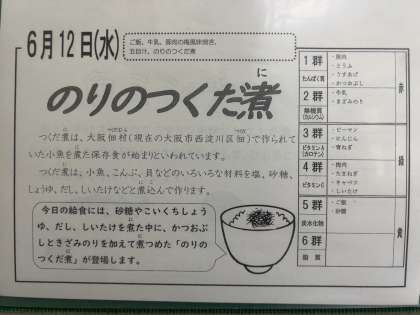 6月12日(水)
ご飯、牛乳、豚肉の梅風味焼き、
五目汁、のりのつくだ煮
のりのつくだ煮
に
つくだ煮は、大阪佃村(現在の大阪市西淀川区佃)で作られて
いた小魚を煮た保存食が始まりといわれています。
つくだ煮は、小魚、こんぶ、貝などのいろいろな材料を塩、砂糖、
しょうゆ、だし、しいたけなどと煮込んで作ります。
今日の給食には、砂糖やこいくちしょう
ゆ、だし、しいたけを煮た中に、かつおぶ
しときざみのりを加えて煮つめた「のりの
つくだ煮」が登場します。
1群
たんぱく質
・豚肉
・とうふ
・うすあげ
・かつおぶし
2群
無機質
(カルシウム)
・牛乳
・きざみのり
赤
3群
ビタミンA
(カロテン)
・ピーマン
・にんじん
・青ねぎ
4群
ビタミンC
・梅肉
・たまねぎ
・キャベツ
・しいたけ
緑
5群
炭水化物
・ご飯
・砂糖
6群
脂質
黄